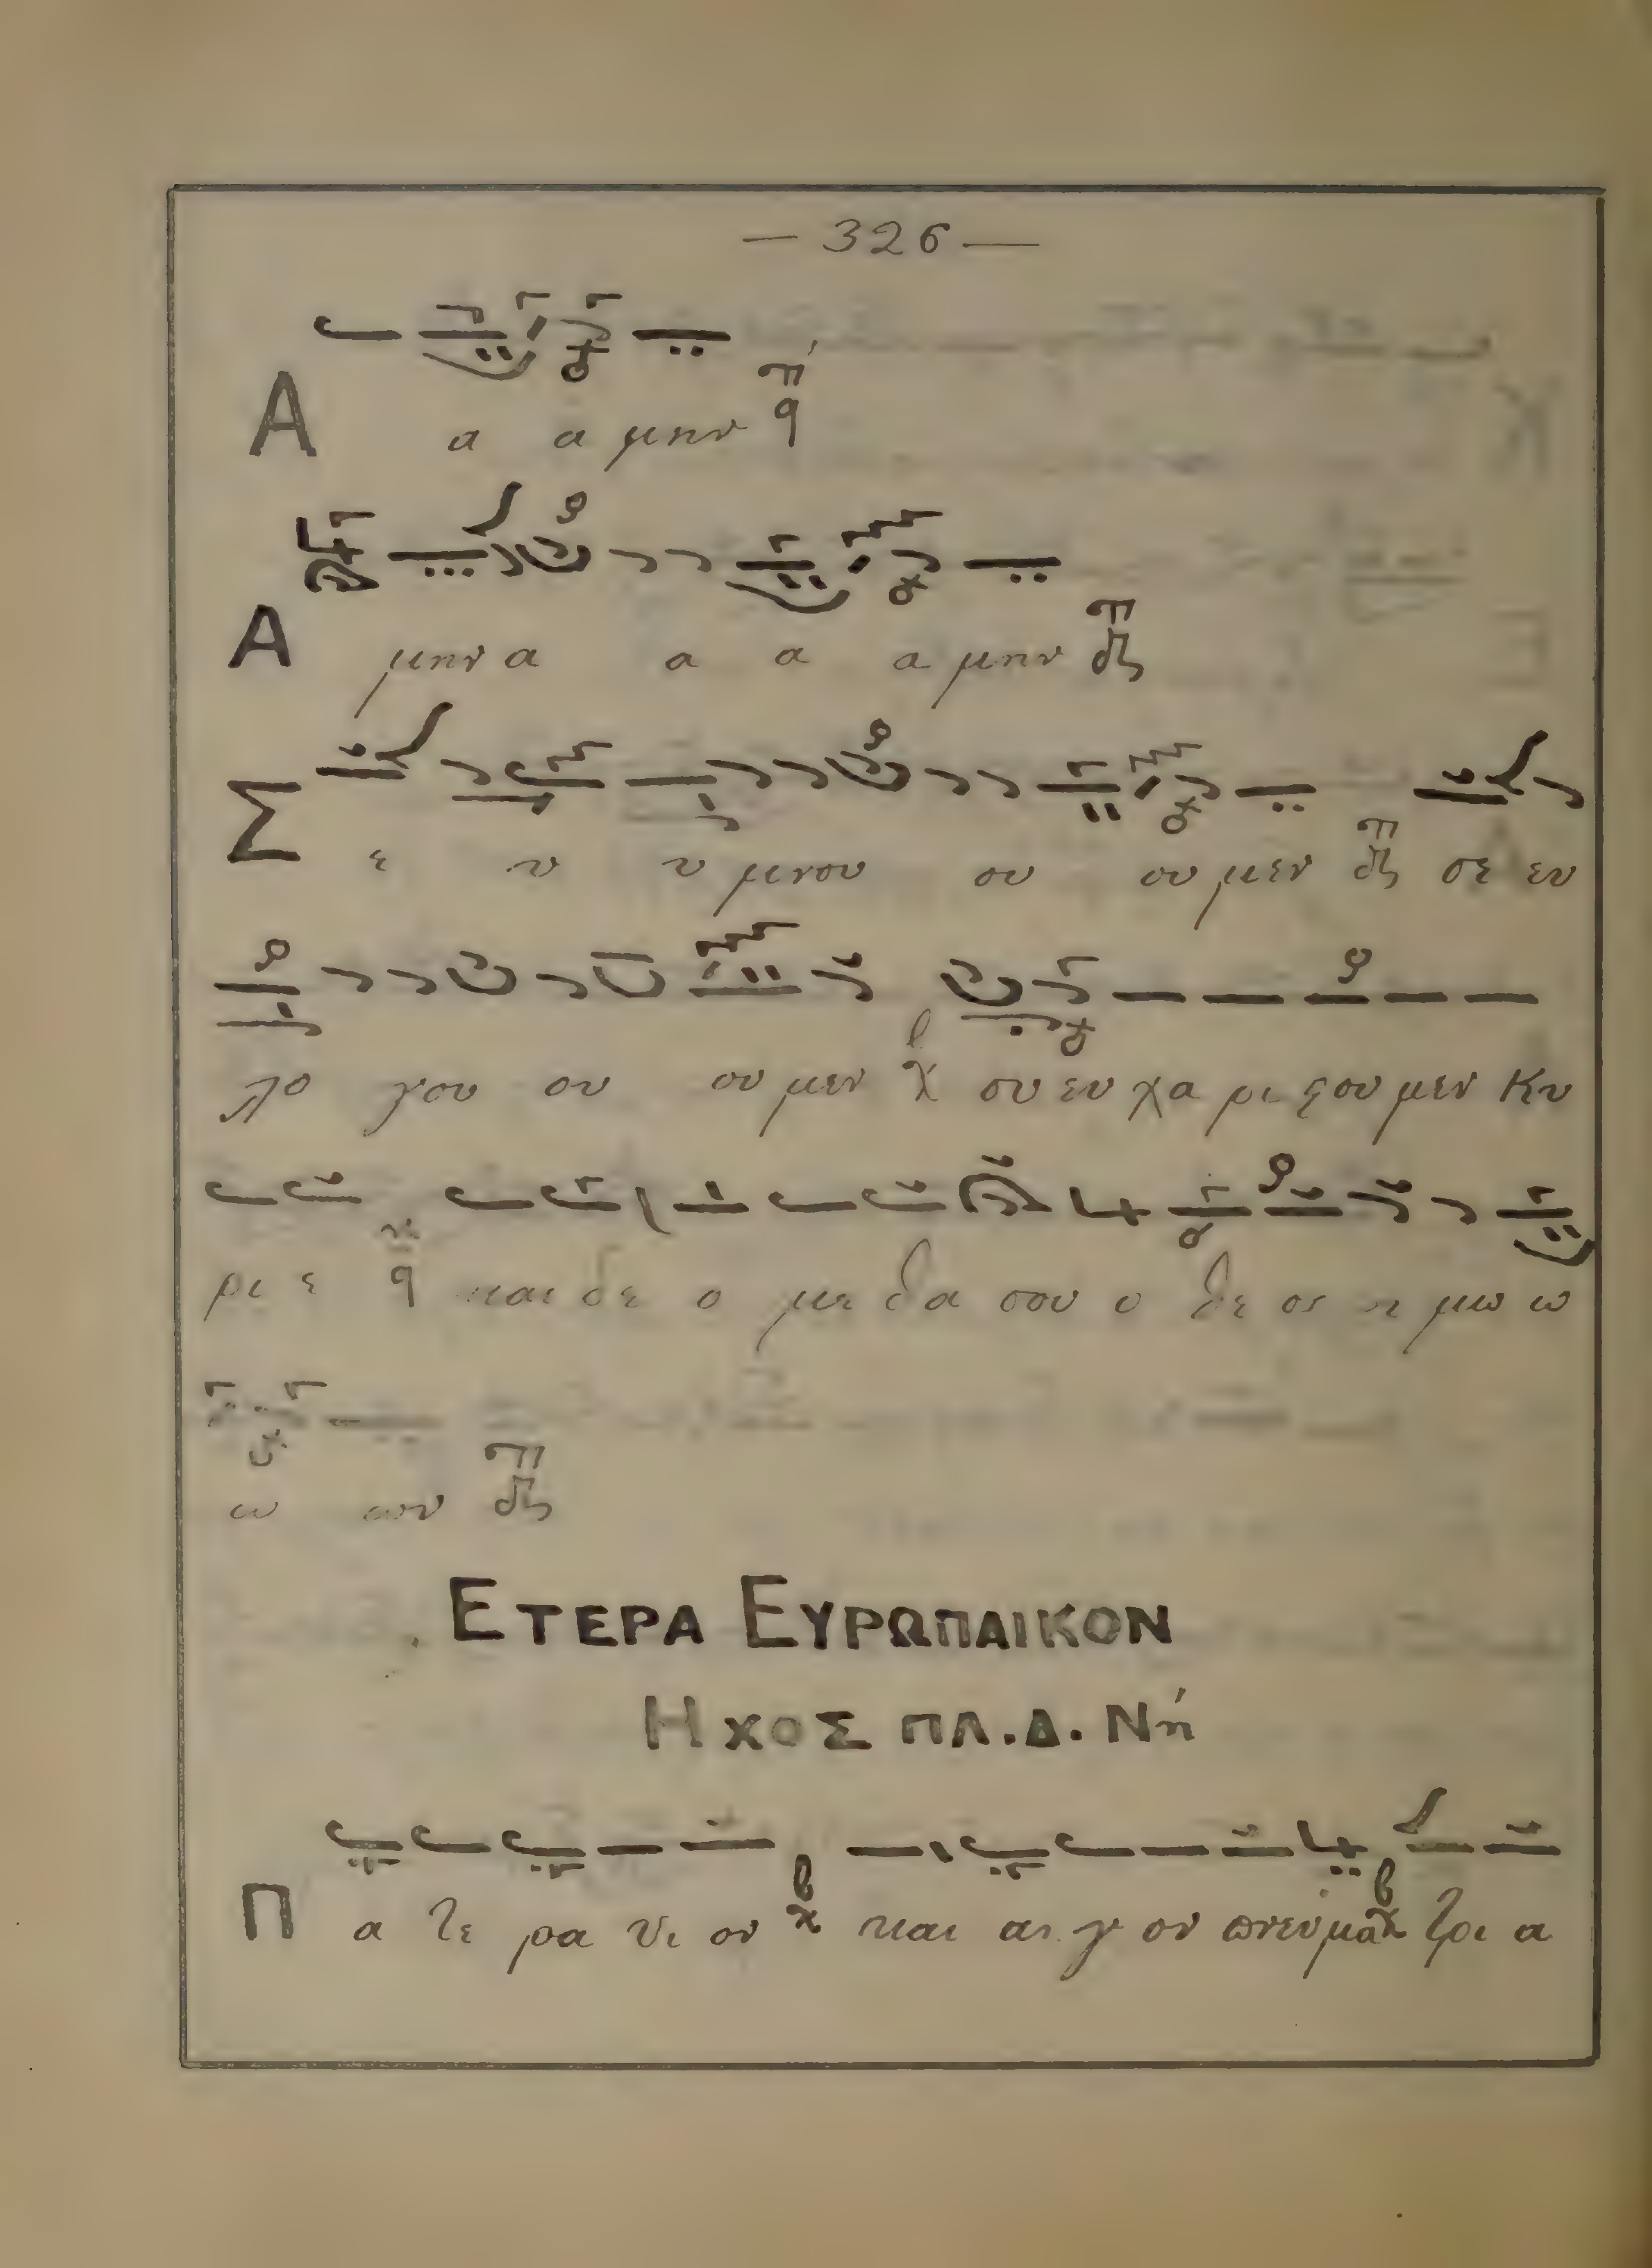 — 326 —
Α α α μην
Α μην α α α α μην
Σ ε υ υ μνου ου ου μεν σε ευ
λο γου ου ου μεν σου ευ χα ρι ϛου μεν Κυ
ρι ε και δε ο με θα σου ο θε ος η μω ω
ω ων
ΕΤΕΡΑ ΕΥΡΩΠΑΙΚΟΝ
ΗΧΟΣ ΠΛ.Δ. Νή
Π α τε ρα υι ον και αι γ ον πνευμα τρι α